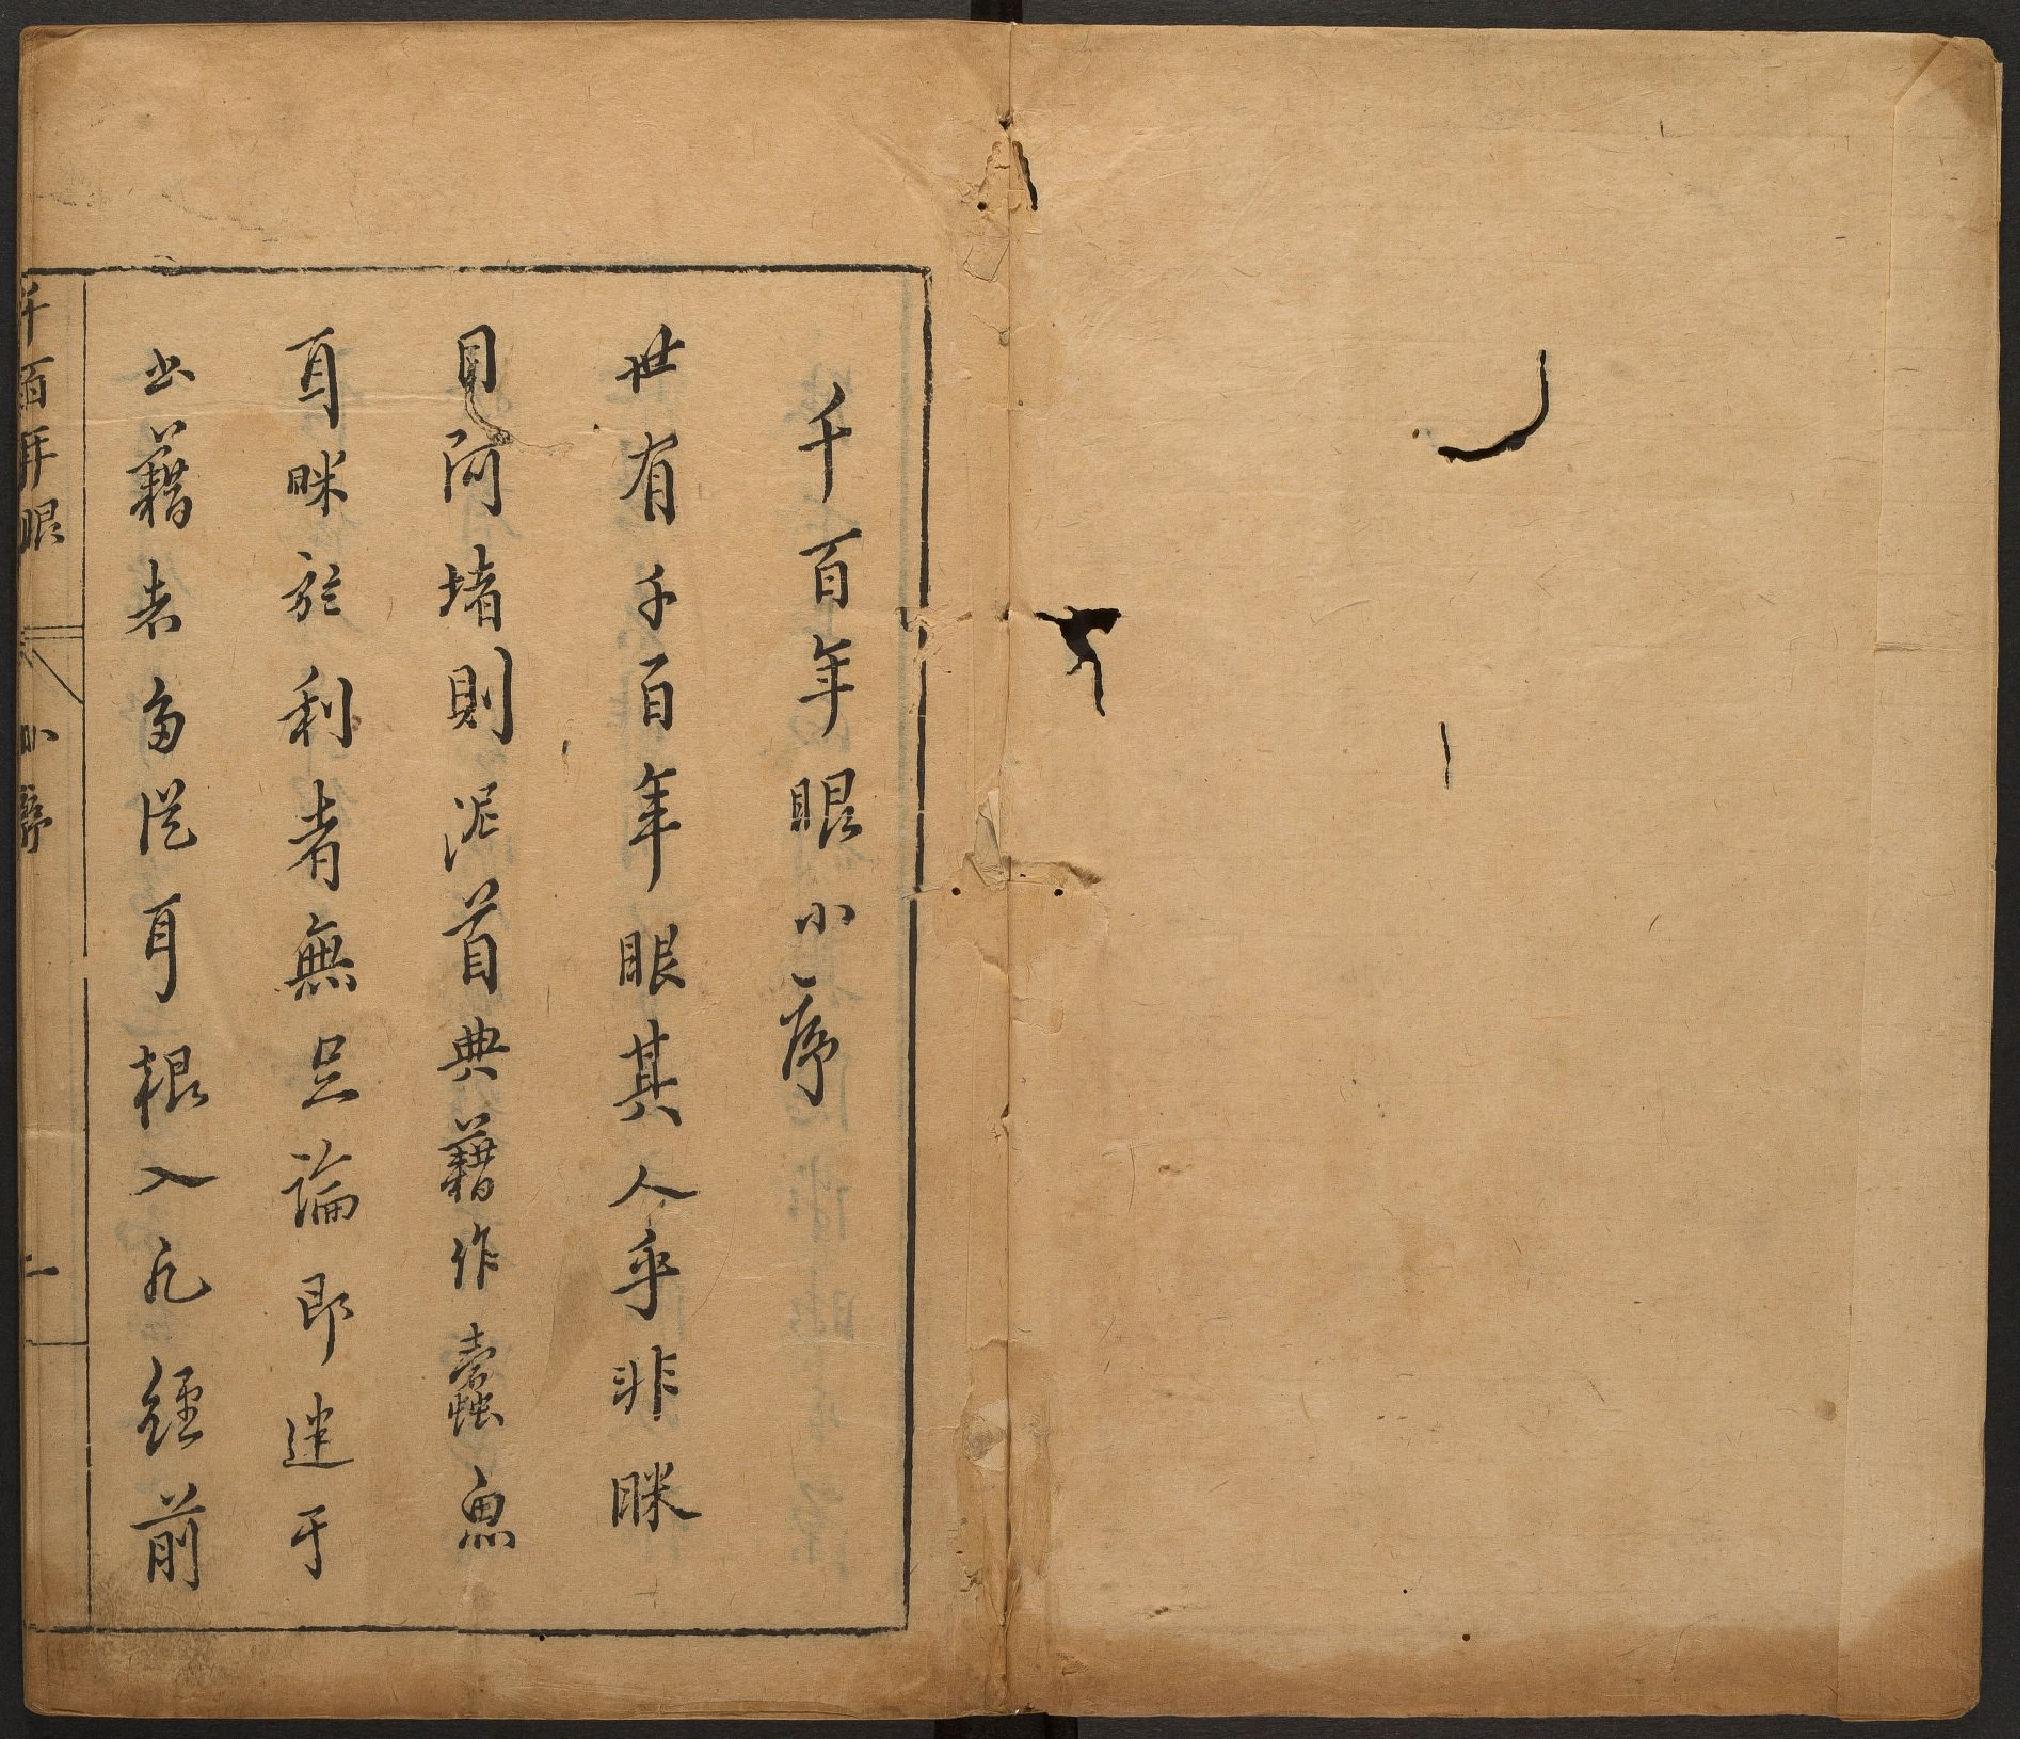 千百年眼小序
世有千百年眼其人乎非眯
見阿堵則泥首典籍作蠹魚
耳眯於利者無足論即迷于
書籍者多從耳根入凡經前
千百年眼 小序 一